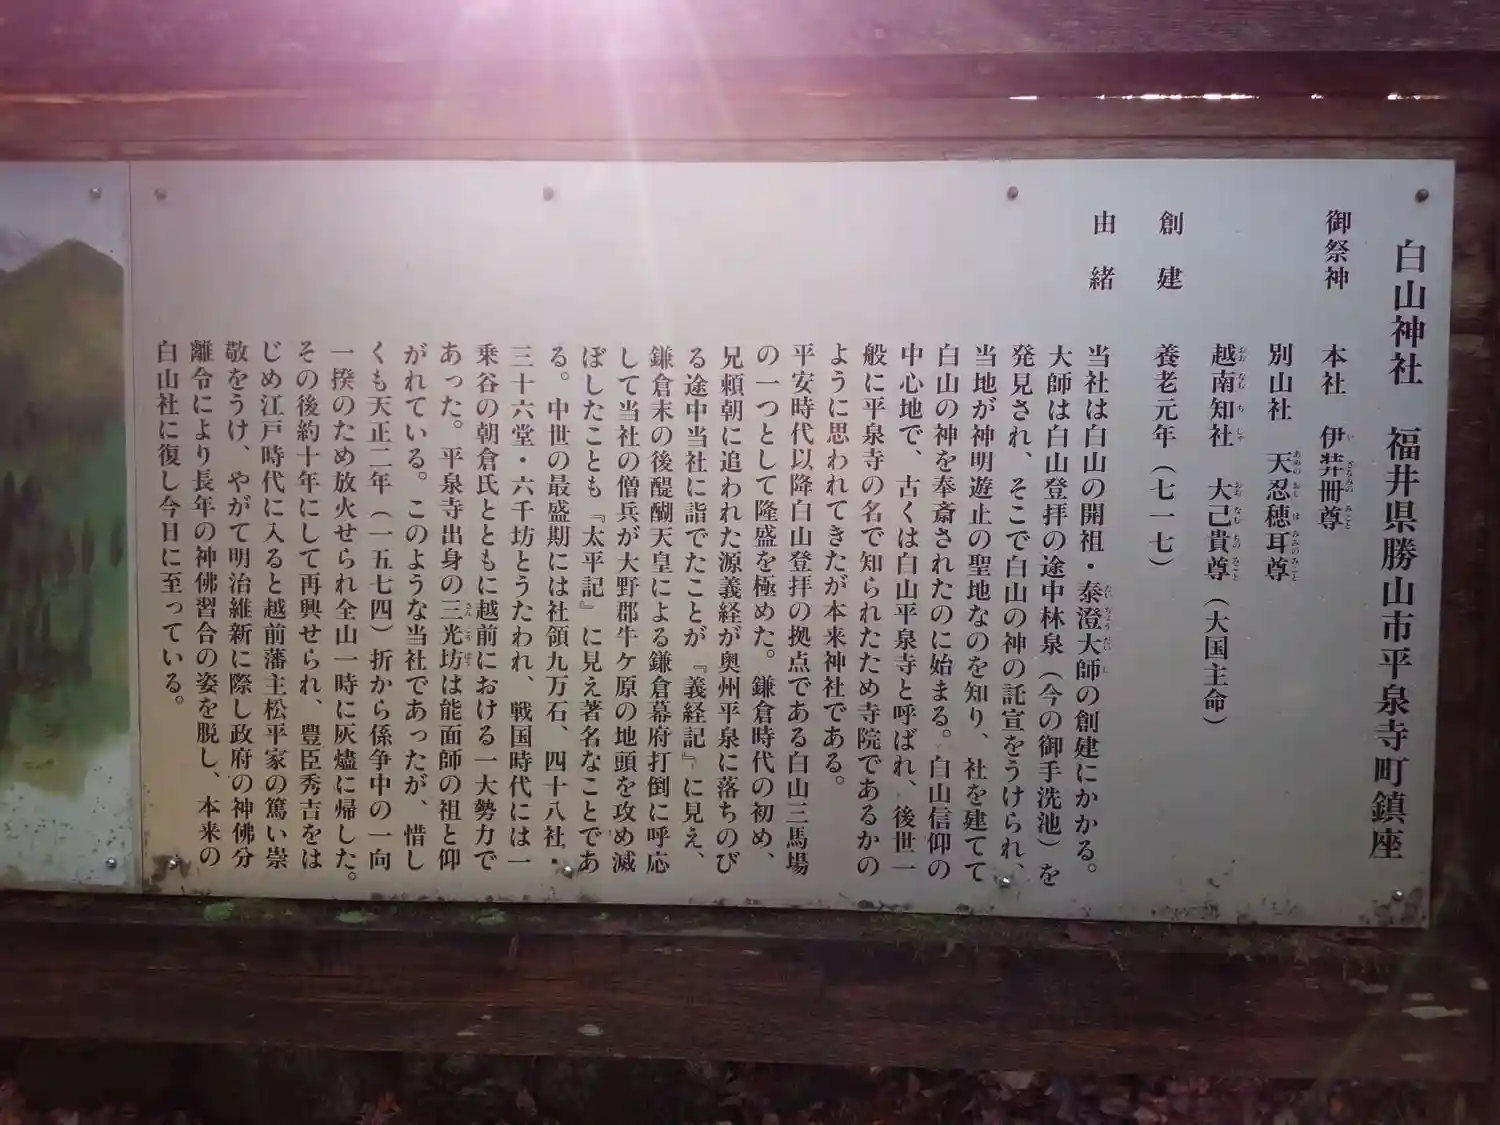 白山神社　福井県勝山市平泉寺町鎮座
御祭神　本社　伊弉冊尊
別山社　天忍穂耳尊
越南知社　大己貴尊（大国主命）
創建　養老元年（七一七）
由緒　当社は白山の開祖・泰澄大師の創建にかかる。
大師は白山登拝の途中林泉（今の御手洗池）を
発見され、そこで白山の神の託宣をうけられ、
当地が神明遊止の聖地なのを知り、社を建てて
白山の神を奉斎されたのに始まる。白山信仰の
中心地で、古くは白山平泉寺と呼ばれ、後世一
般に平泉寺の名で知られたため寺院であるかの
ように思われてきたが本来神社である。
平安時代以降白山登拝の拠点である白山三馬場
の一つとして隆盛を極めた。鎌倉時代の初め、
兄頼朝に追われた源義経が奥州平泉に落ちのび
る途中当社に詣でたことが『義経記』に見え、
鎌倉末の後醍醐天皇による鎌倉幕府打倒に呼応
して当社の僧兵が大野郡牛ケ原の地頭を攻め滅
ぼしたことも『太平記』に見え著名なことであ
る。中世の最盛期には社領九万石、四十八社・
三十六堂・六千坊とうたわれ、戦国時代には一
乗谷の朝倉氏とともに越前における一大勢力で
あった。平泉寺出身の三光坊は能面師の祖と仰
がれている。このような当社であったが、惜し
くも天正二年（一五七四）折から係争中の一向
一揆のため放火せられ全山一時に灰燼に帰した。
その後約十年にして再興せられ、豊臣秀吉をは
じめ江戸時代に入ると越前藩主松平家の篤い崇
敬をうけ、やがて明治維新に際し政府の神佛分
離令により長年の神佛習合の姿を脱し、本来の
白山社に復し今日に至っている。